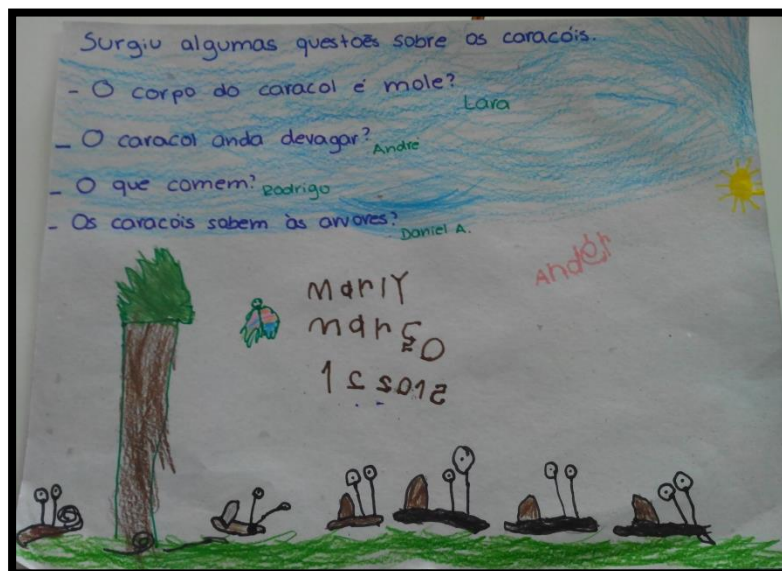 Surgiu algumas questões sobre os caracóis.
- O corpo do caracol é mole? Lara
- O caracol anda devagar? André
- O que comem? Rodrigo
- Os caracois sobem às arvores? Daniel A.
Marly
março